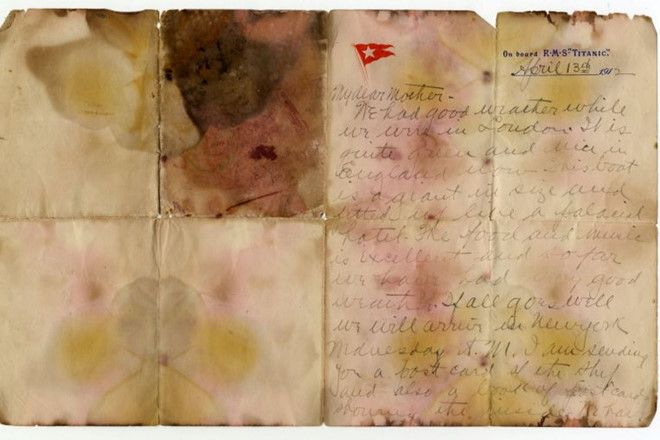 On board R·M·S "TITANIC."
April 13th 1912
My dear Mother -
We had good weather while
we were in London. It is
quite green and nice in
England now. This boat
is a giant in size and
fitted up like a palacial
hotel. The food and music
is excellent and so far
we have had good
weather. If all goes well
we will arrive in New york
Wednesday A. M. I am sending
you a post card of the ship
and also a book of Postcards
showing the inside.